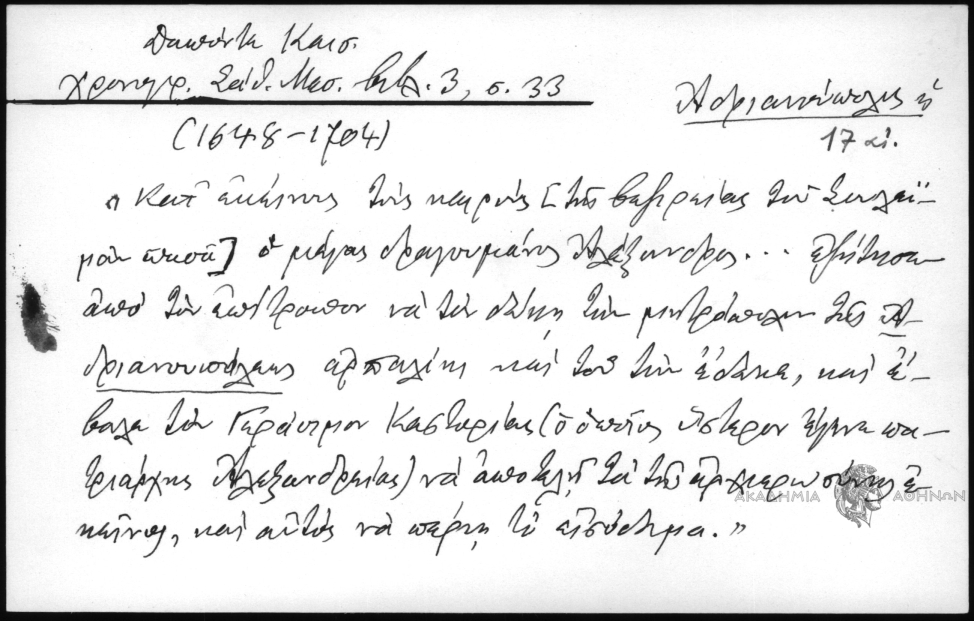 Δαπόντε Καισ.
χρονογρ. Σάθ. Μεσ. Βιβλ. 3, σ. 33
Ἀδριανούπολις ἡ
(1648-1704)
17 αἰ.
"Κατ' ἐκείνους τοὺς καιρούς [τῆς βεζιρείας τοῦ Σουλεϊ-
μὰν πασᾶ] ὁ μέγας δραγουμάνος Ἀλέξανδρος... ἐζήτησεν
ἀπὸ τὸν ἐπίτροπον νὰ τὸν δώσῃ τὴν μητρόπολιν τῆς Ἀ-
δριανουπόλεως ἀρπαλίκι καὶ τοῦ τὴν ἔδωκε, καὶ ἔ-
βαλε τὸν Γεράσιμον Καστορίας (ὁ ὁποῖος ὕστερον ἔγινε πα-
τριάρχης Ἀλεξανδρείας) νὰ ἀποτελῇ τὰ τῆς ἀρχιερωσύνης ἐ-
κεῖνος, καὶ αὐτὸς νὰ παίρνῃ τὸ εἰσόδημα."
ΑΚΑΔΗΜΙΑ ΑΘΗΝΩΝ